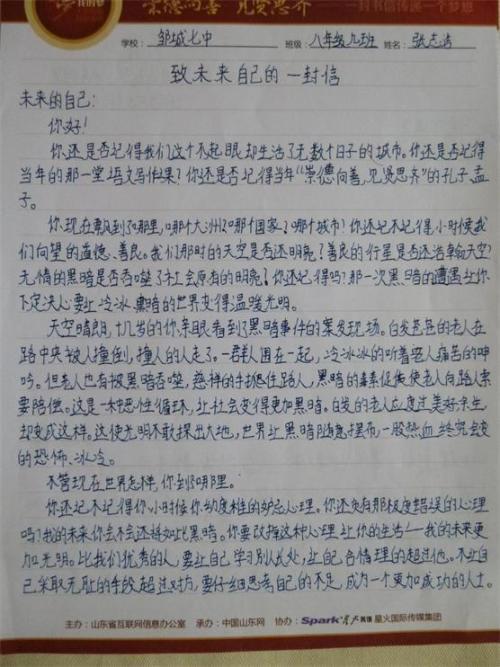 崇德向善 见贤思齐
一封书信传递一个梦想
学校: 邹城七中 班级: 八年级九班 姓名: 张志浩
致未来自己的一封信
未来的自己:
你好!
你还是否记得我们这个不起眼却生活了无数个日子的城市。你还是否记得
当年的那一堂语文写作课?你还是否记得当年“崇德向善,见贤思齐”的孔子孟
子。
你现在飘到了哪里,哪个大洲?哪个国家?哪个城市?你还记不记得,小时候我
们向望的道德、善良。我们那时的天空是否还明亮?善良的行星是否还浩翰天空?
无情的黑暗是否吞噬了社会原有的明亮?你还记得吗?那一次黑暗的遭遇让你
下定决心要让冷冰黑暗的世界变得温暖光明。
天空晴朗,十几岁的你亲眼看到了黑暗事件的案发现场。白发苍苍的老人在
路中央被人撞倒,撞人的人走了。一群人围在一起,冷冰冰的听着老人痛苦的呻
吟。但老人也有被黑暗吞噬,慈祥的手揪住路人,黑暗的毒素促使使老人向路人索
要陪偿。这是一种恶性循环,让社会变得更加黑暗。白发的老人应度过美好余生
却变成这样。这使光明不敢探出大地,世界让黑暗随意摆布一股热血终究会变
的恐怖、冰冷。
不管现在世界怎样,你到哪里。
你还记不记得你小时候你幼度稚的妒忌心理。你还负有那极度错误的心理
吗?我的未来你会不会还将如此黑暗。你要改掉这种心理让你的生活——我的未来更
加光明。比我们优秀的人,要让自己学习别人长处,让自己合情理的超过他。不让自
己采取无耻的手段超过对方,要仔细思考自己的不足,成为一个更加成功的人士。
主办:山东省互联网信息办公室 承办:中国山东网 协办:Spark 星火英语 星火国际传媒集团